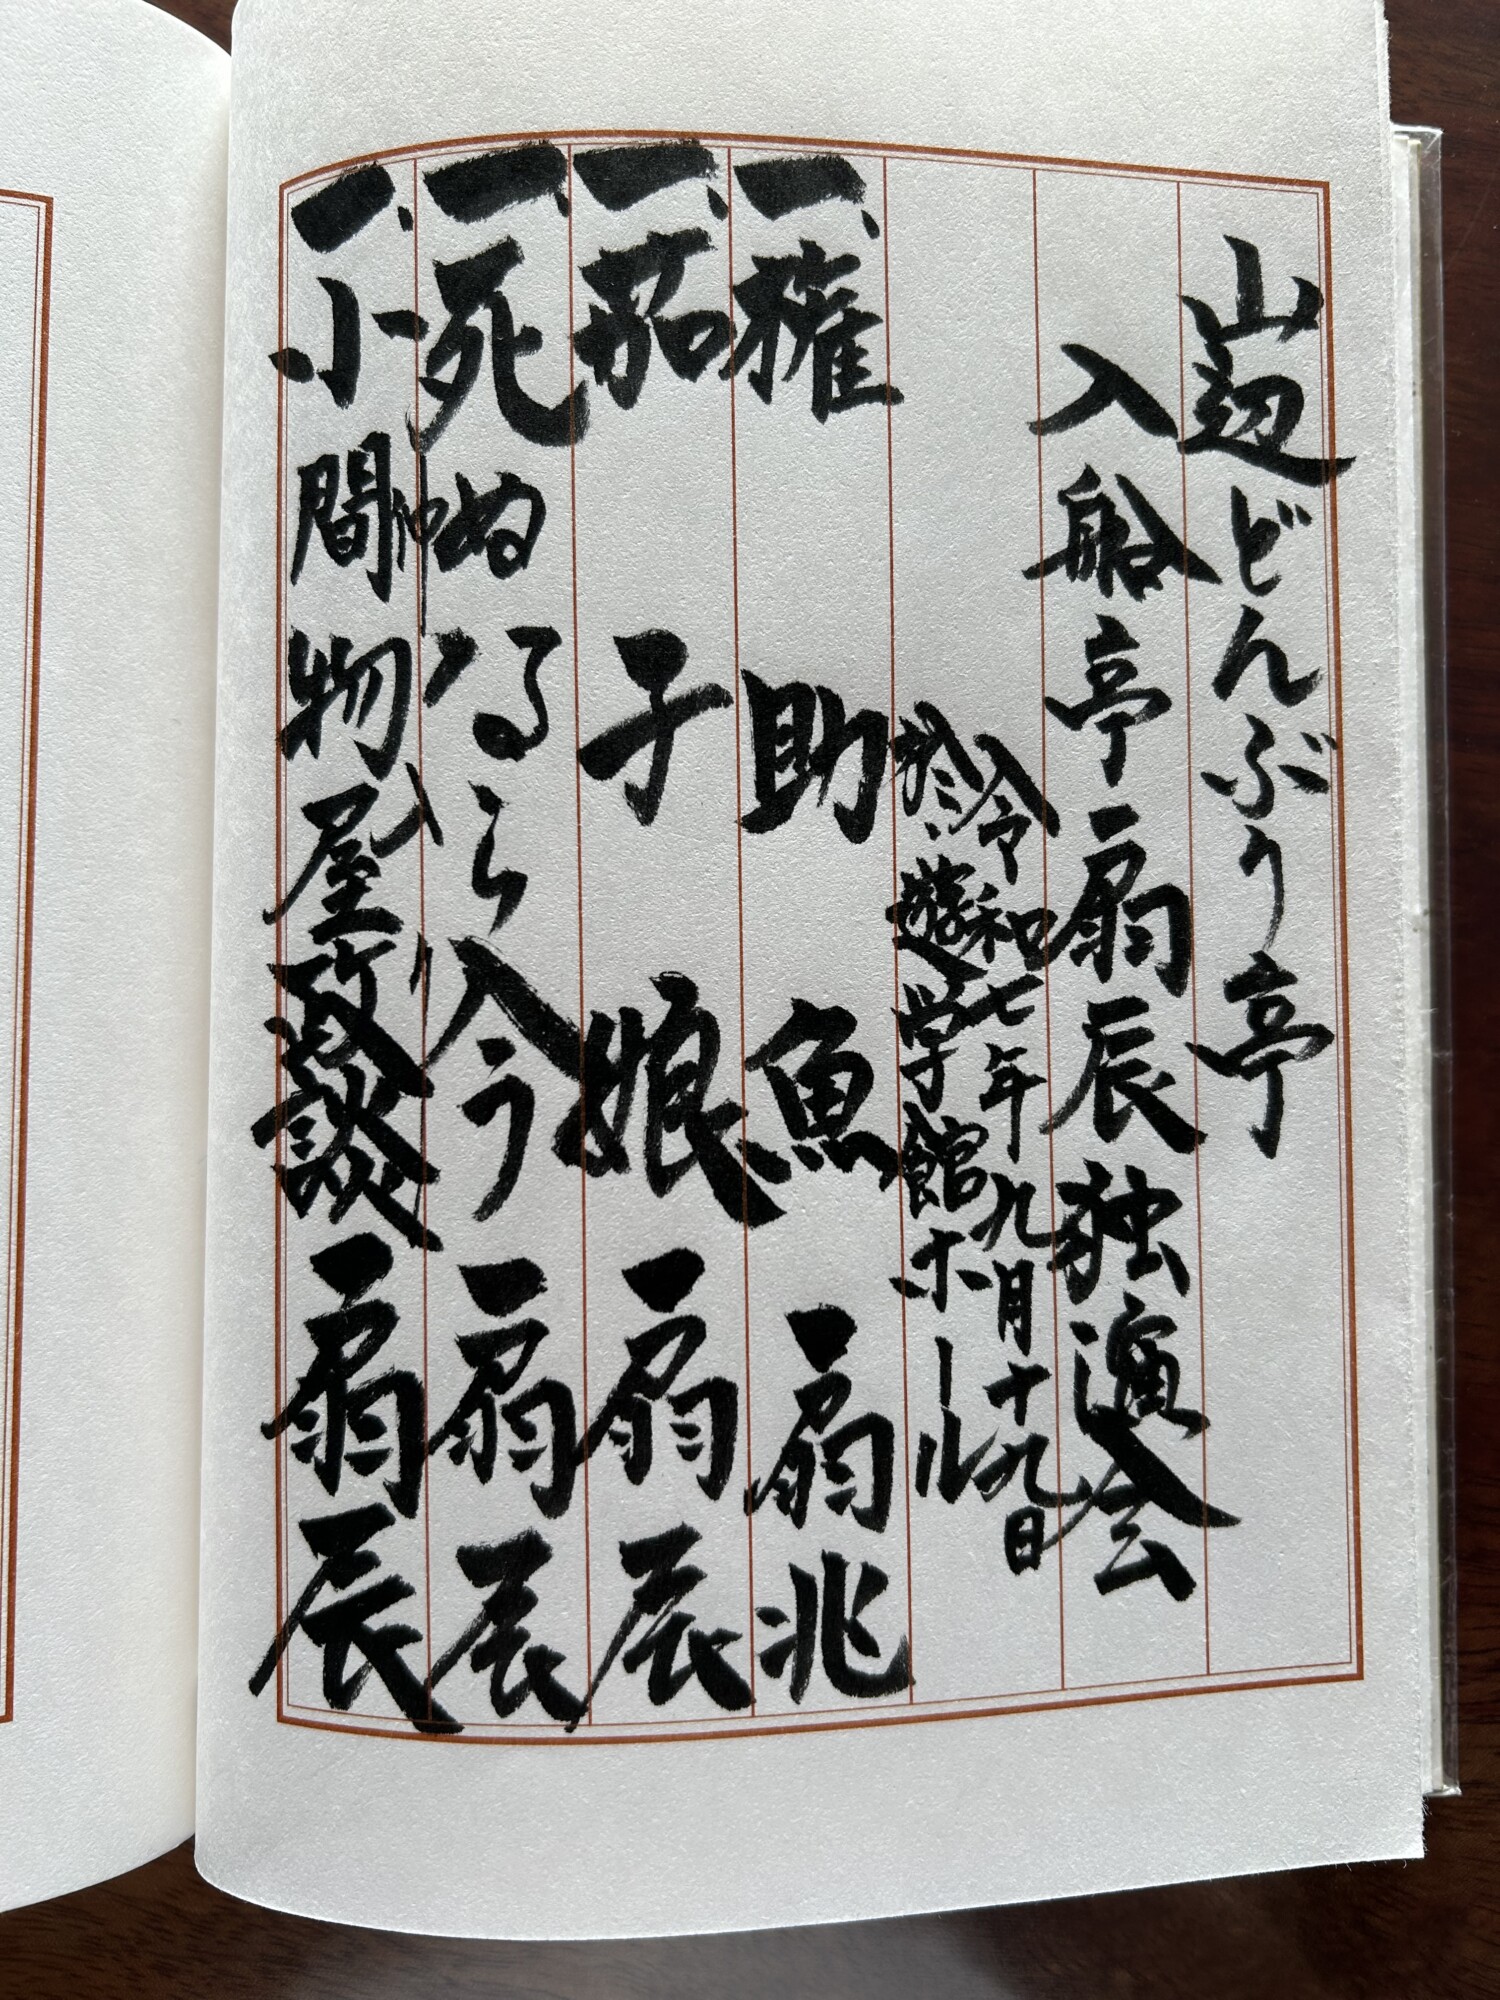 山辺どんぶり亭
入船亭扇辰独演会
令和七年九月十九日
於:遊学館ホール
一、権助魚 扇兆
一、茄子娘 扇辰
一、死ぬなら今 扇辰
仲入り
一、小間物屋政談 扇辰